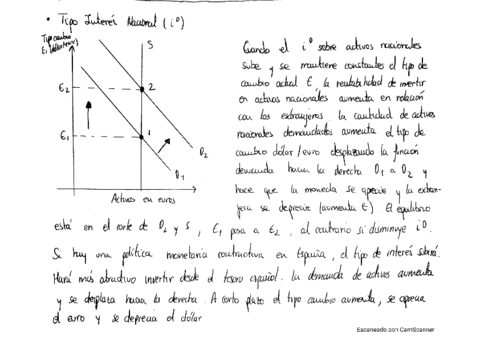 • Tipo Interés Nacional (i⁰)
Tipo cambio
E₁ (dólar/euro)
S
E₂
2
E₁
1
D₂
D₁
Activos en euros
Cuando el i⁰ sobre activos nacionales
sube y se mantiene constantes el tipo de
cambio actual E, la rentabilidad de invertir
en activos nacionales aumenta en relación
con los extranjeros la cantidad de activos
nacionales demandados aumenta el tipo de
cambio dólar/euro desplazando la función
demanda hacia la derecha D₁ a D₂ y
hace que la moneda se aprecie y la extran-
jera se deprecie (aumenta E). El equilibrio
está en el corte de D₂ y S, E₁ pasa a E₂, al contrario si disminuye i⁰.
Si hay una política monetaria contractiva en España, el tipo de interés subirá.
Hará más atractivo invertir desde el tesoro español. La demanda de activos aumenta
y se desplaza hacia la derecha. A corto plazo el tipo cambio aumenta, se aprecia
el euro y se deprecia el dólar
Escaneado con CamScanner